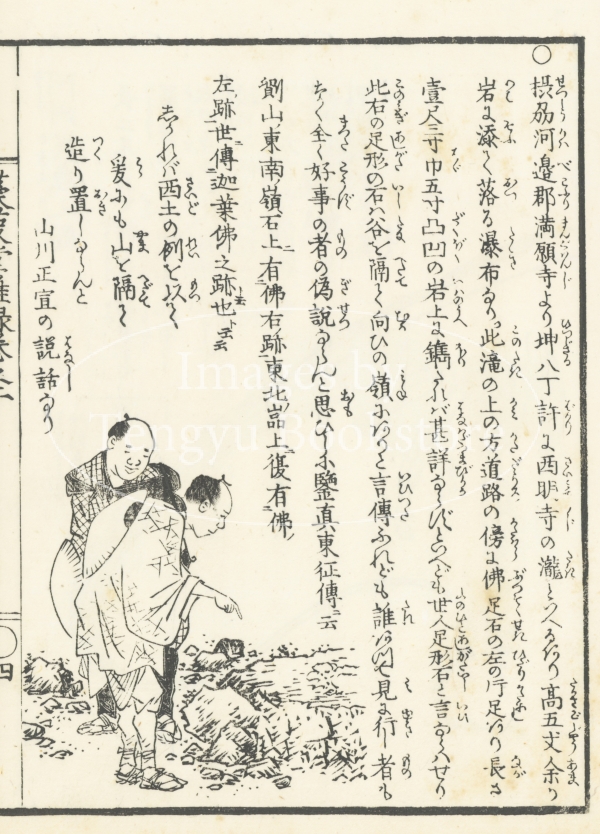 ○
摂刕河邉郡満願寺より坤八丁許に西明寺の瀧といへるあり高五丈余り
岩に添て落る瀑布なり此滝の上の方道路の傍に佛足石の左の片足あり長さ
壹尺三寸巾五寸凸凹の岩上に鐫たれバ甚詳ならずといへども世人足形石と言ならハせり
此石の足形の石ハ谷を隔て向ひの嶺にありと言傳ふれども誰ありて見に行し者も
なく全く好事の者の偽説ならんと思ひしに鑒真東征傳ニ云
鄮山東南嶺石上ニ有佛右跡東北嵓上復有佛
左跡世傳迦葉佛之跡也ト云云
しかれバ西土の例を以て
爰にも山を隔て
造り置しならんと
山川正宣の説話なり
四
Images by
Tengyu Bookstore